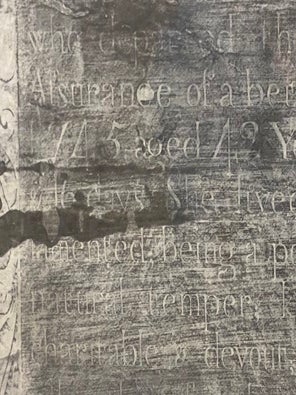 who departed Th
Aſsurance of a bet
1745 aged 42 Ye
She live
lamented, being a pe
natural temper,
charitable & devout